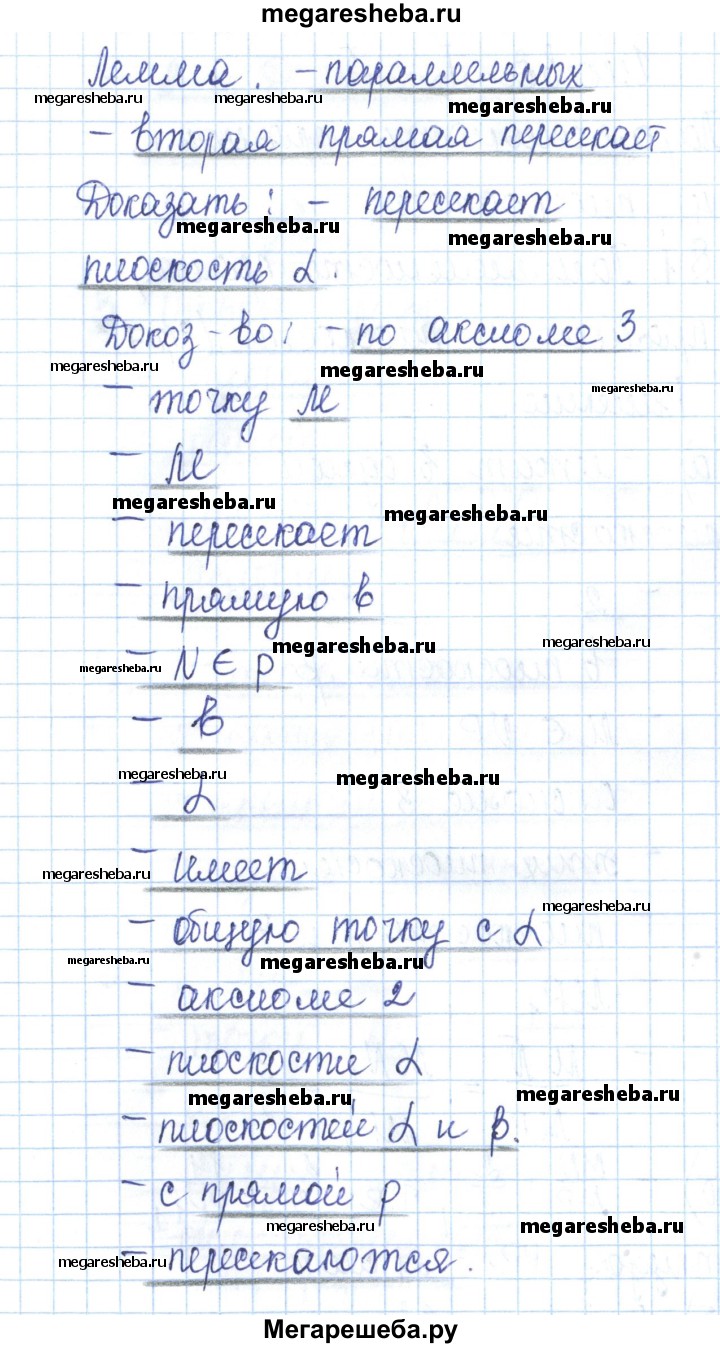 megaresheba.ru
Лемма. - параллельных
megaresheba.ru megaresheba.ru megaresheba.ru
- вторая прямая пересекает
Доказать: - пересекает
megaresheba.ru megaresheba.ru
плоскость α.
Докоз-во: - по аксиоме 3
megaresheba.ru megaresheba.ru megaresheba.ru
- точку М
- М
megaresheba.ru megaresheba.ru
- пересекает
- прямую в
megaresheba.ru megaresheba.ru megaresheba.ru
- N ∈ p
- в
megaresheba.ru megaresheba.ru
- α
- имеет
megaresheba.ru megaresheba.ru
- общую точку с α
megaresheba.ru megaresheba.ru
- аксиоме 2
- плоскости α
megaresheba.ru megaresheba.ru
- плоскостей α и β.
- с прямой р
megaresheba.ru megaresheba.ru
- пересекаются.
megaresheba.ru megaresheba.ru
Мегарешеба.ру